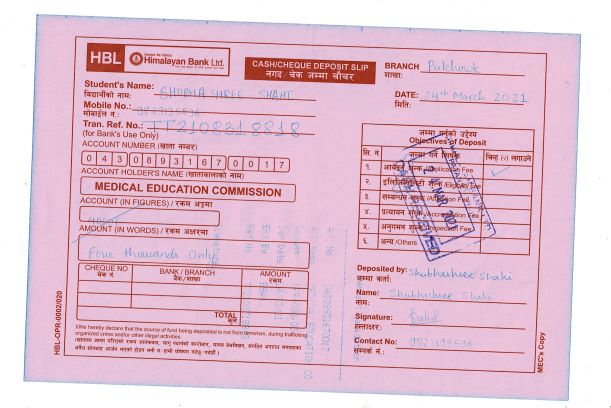 HBL हिमालयन बैंक लिमिटेड
Himalayan Bank Ltd.
CASH/CHEQUE DEPOSIT SLIP
नगद / चेक जम्मा भौचर
BRANCH Pulchowk
शाखाः
Student's Name: SHUBHA SHREE SHAHI
विद्यार्थीको नामः
DATE: 24th March 2021
मितिः
Mobile No.:
मोबाईल नं.:
Tran. Ref. No.: TT2108318818
(for Bank's Use Only)
ACCOUNT NUMBER (खाता नम्बर)
04308931670017
ACCOUNT HOLDER'S NAME (खातावालाको नाम)
MEDICAL EDUCATION COMMISSION
ACCOUNT (IN FIGURES) / रकम अङ्कमा
4000/
AMOUNT (IN WORDS) / रकम अक्षरमा
Four thousands Only
CHEQUE NO
चेक नं.
BANK / BRANCH
बैंक / शाखा
AMOUNT
रकम
TOTAL
कुल
I/We hereby declare that the source of fund being deposited is not from terrorism, during trafficking
organized crime and/or other illegal activities.
जम्मा गर्नुको उद्देश्य
Objectives of Deposit
सि. नं. जम्मा गर्ने शिर्षक चिन्ह (√) लगाउने
१. आवेदन शुल्क/Application Fee √
२. /Eligibility Fee
३. सम्बन्धन शुल्क/Affiliation Fee
४. प्रत्यायन शुल्क/Accreditation Fee
५. अनुगमन शुल्क/Inspection Fee
६. अन्य/Others
CASH RECEIVED
Deposited by: Shubhashree Shahi
जम्मा कर्ताः
Name: Shubhashree Shahi
नामः
Signature:
हस्ताक्षरः
Contact No:
सम्पर्क नं.:
HBL-OPR-0002/020
MEC's Copy